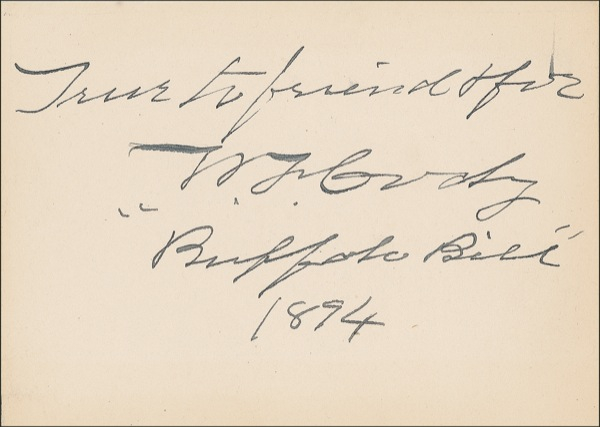 True to friend & foe
W. F. Cody
"Buffalo Bill"
1894